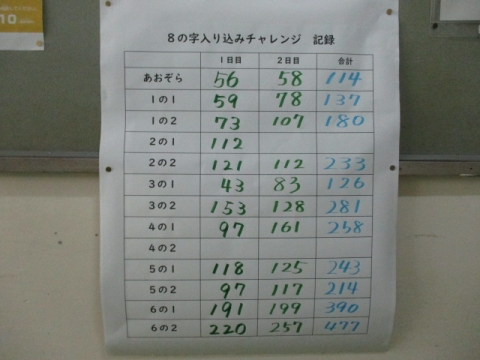 10
8の字入り込みチャレンジ 記録
1日目 2日目 合計
あおぞら 56 58 114
1の1 59 78 137
1の2 73 107 180
2の1 112
2の2 121 112 233
3の1 43 83 126
3の2 153 128 281
4の1 97 161 258
4の2
5の1 118 125 243
5の2 97 117 214
6の1 191 199 390
6の2 220 257 477